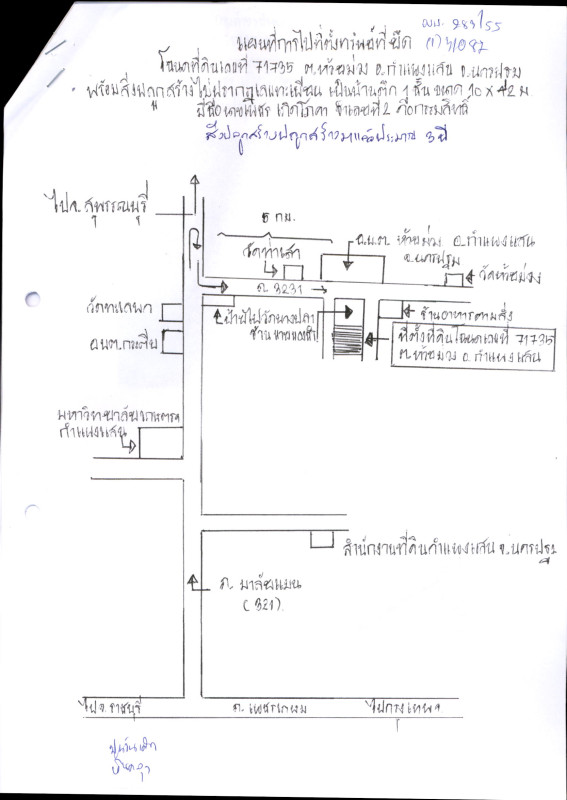 ผบ. 989/55
แผนที่การไปที่ตั้งทรัพย์ที่ยึด
โฉนดที่ดินเลขที่ 71735 ต.ห้วยม่วง อ.กำแพงแสน จ.นครปฐม
พร้อมสิ่งปลูกสร้างไม่ปรากฏเลขทะเบียน เป็นบ้านตึก 1 ชั้น ขนาด 10 x 42 ม
มีชื่อ จำเลยที่ 2 ถือกรรมสิทธิ์
สิ่งปลูกสร้างปลูกสร้างมาแล้วประมาณ 3 ปี
ไปจ.สุพรรณบุรี
5 กม.
วัดท่าเสา
อ.บ.ต. ห้วยม่วง อ.กำแพงแสน
จ.นครปฐม
วัดห้วยม่วง
ถ. 3231
วัดทะเลบก
ป้ายไปวัดบางปลา
ร้านขายของชำ
ร้านอาหารตามสั่ง
อบต.กระตีบ
ที่ตั้งที่ดินโฉนดเลขที่ 71735
ต.ห้วยม่วง อ.กำแพงแสน
มหาวิทยาลัยเกษตรฯ
กำแพงแสน
สำนักงานที่ดินกำแพงแสน จ.นครปฐม
ถ. มาลัยแมน
(321)
ไปจ.ราชบุรี
ถ.เพชรเกษม
ไปกรุงเทพฯ